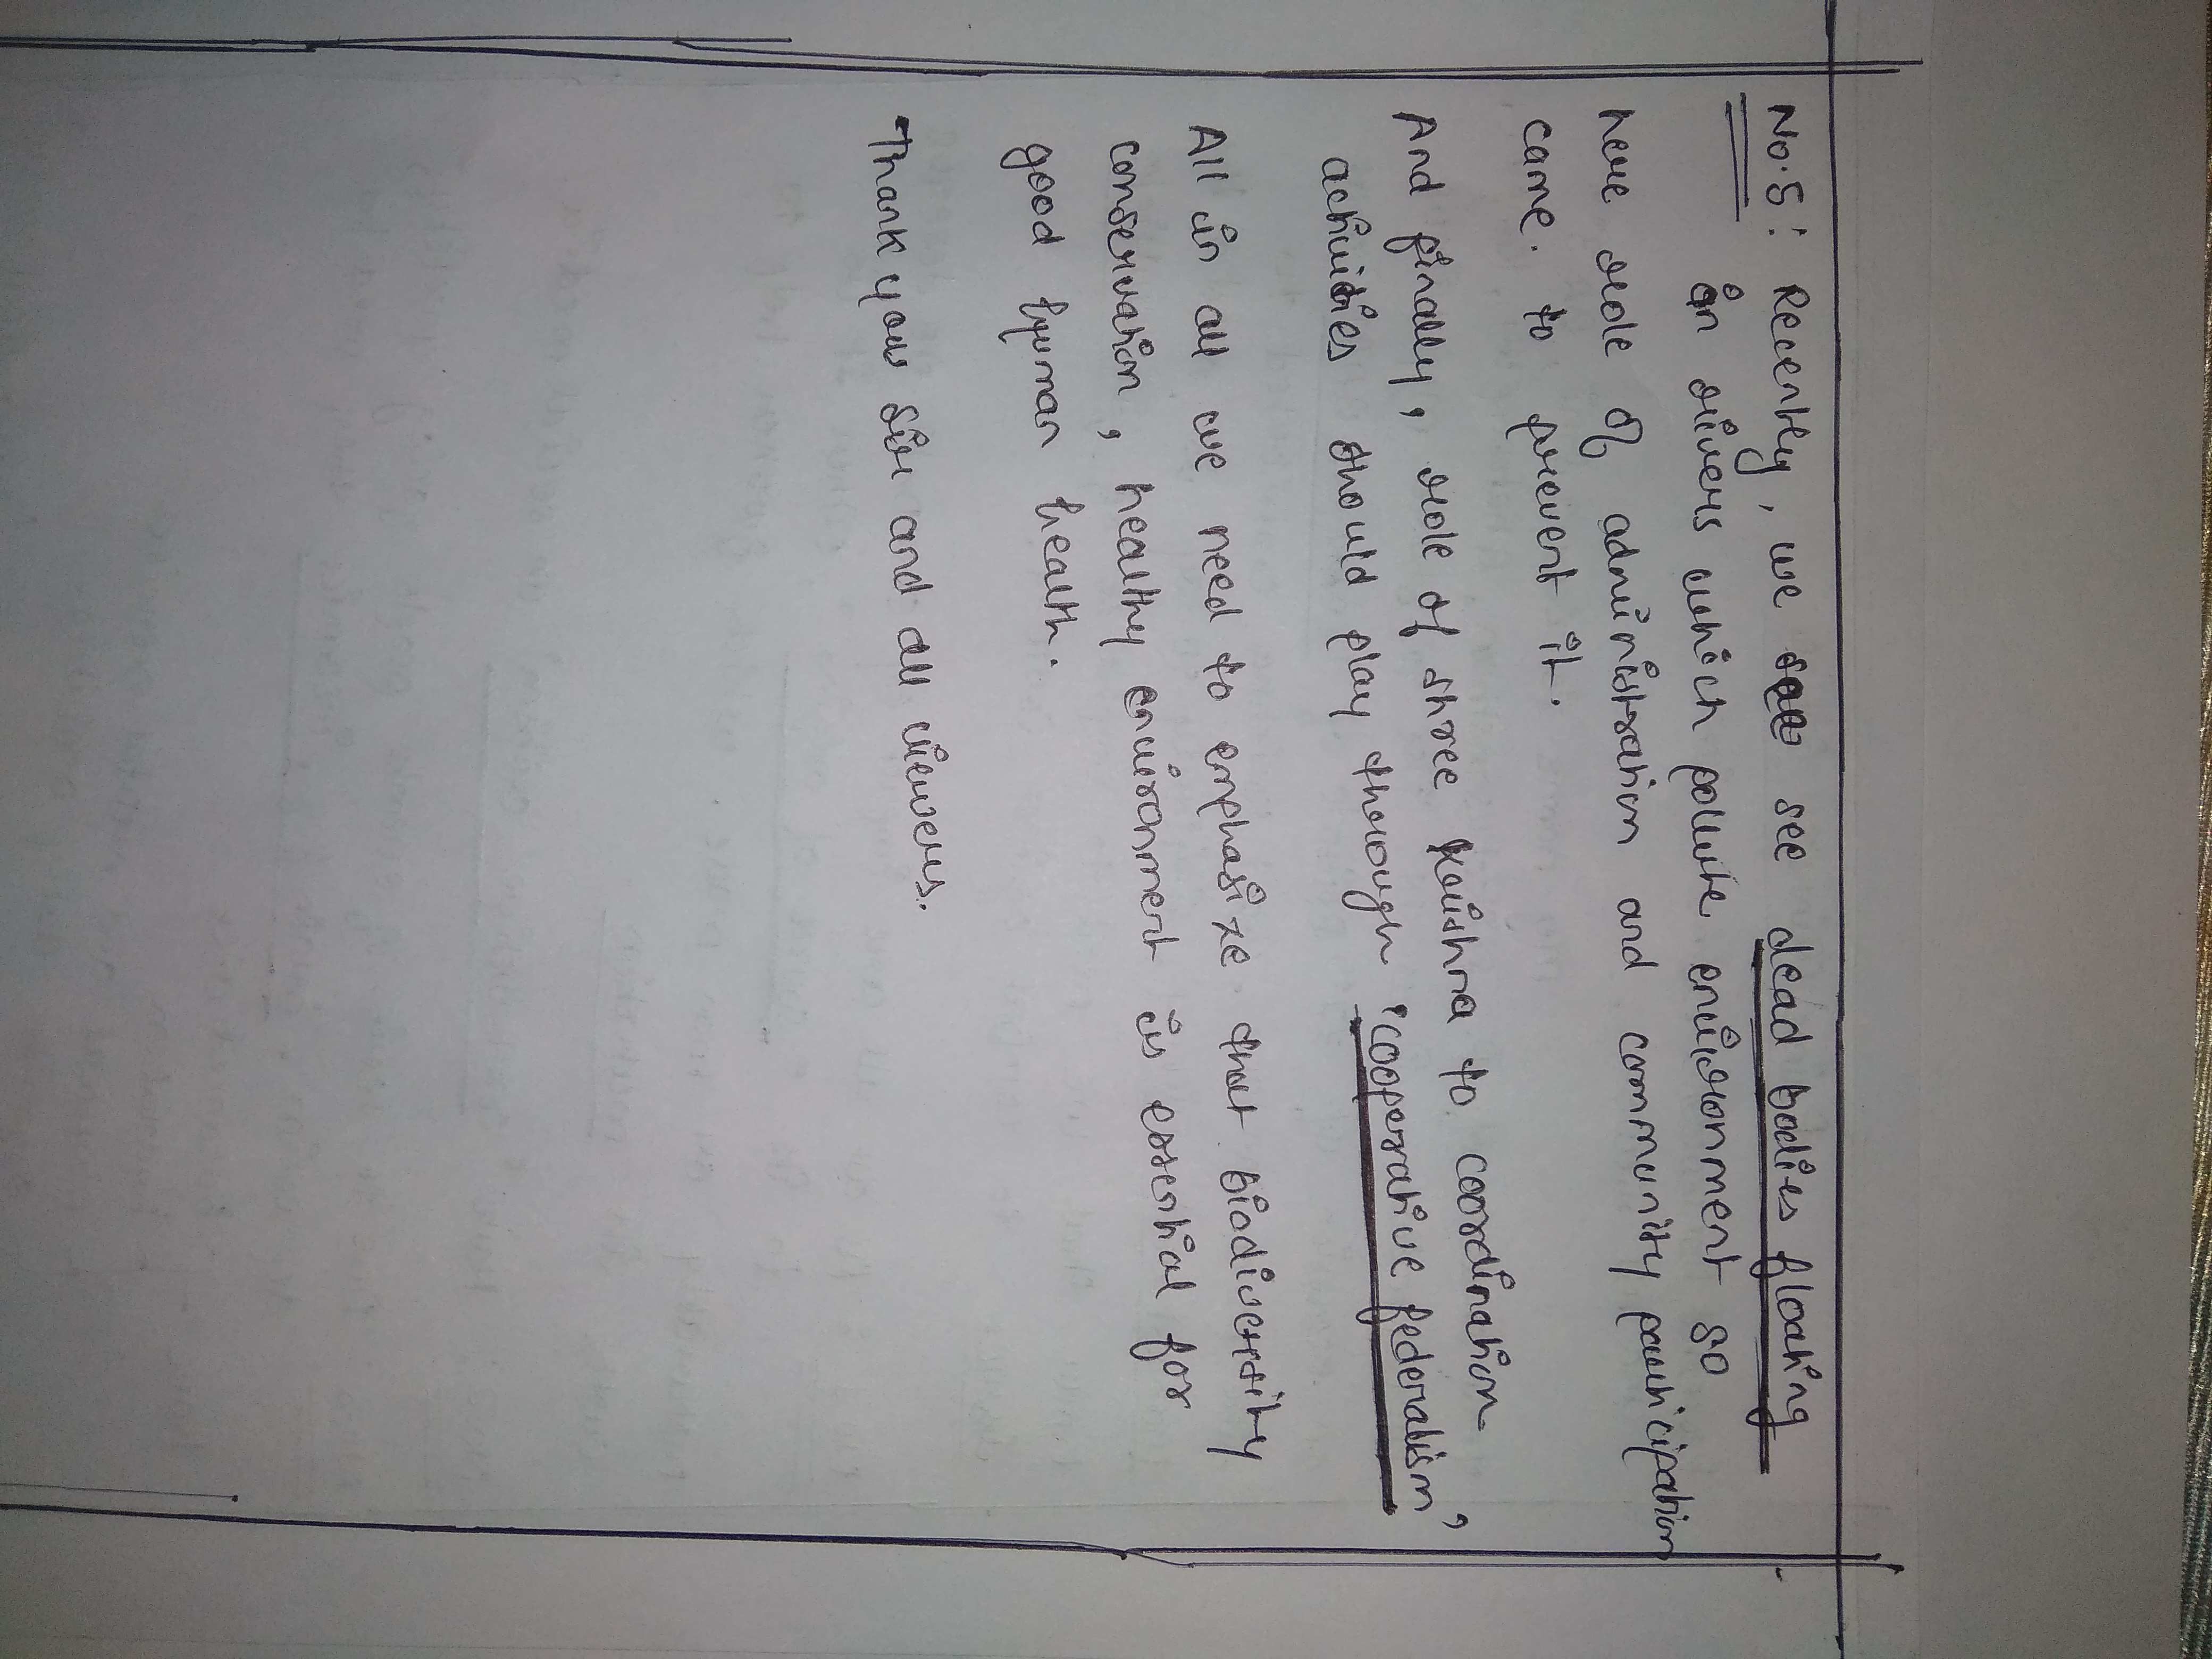 No.5: Recently, we see dead bodies floating
in rivers which pollute environment so
here role of administration and community participation
came. to prevent it.
And finally, role of shree Krishna to coordination
activities should play through 'cooperative federalism',
All in all we need to emphasize that biodiversity
conservation, healthy environment is essential for
good hyuman health.
Thank you sir and all viewers.